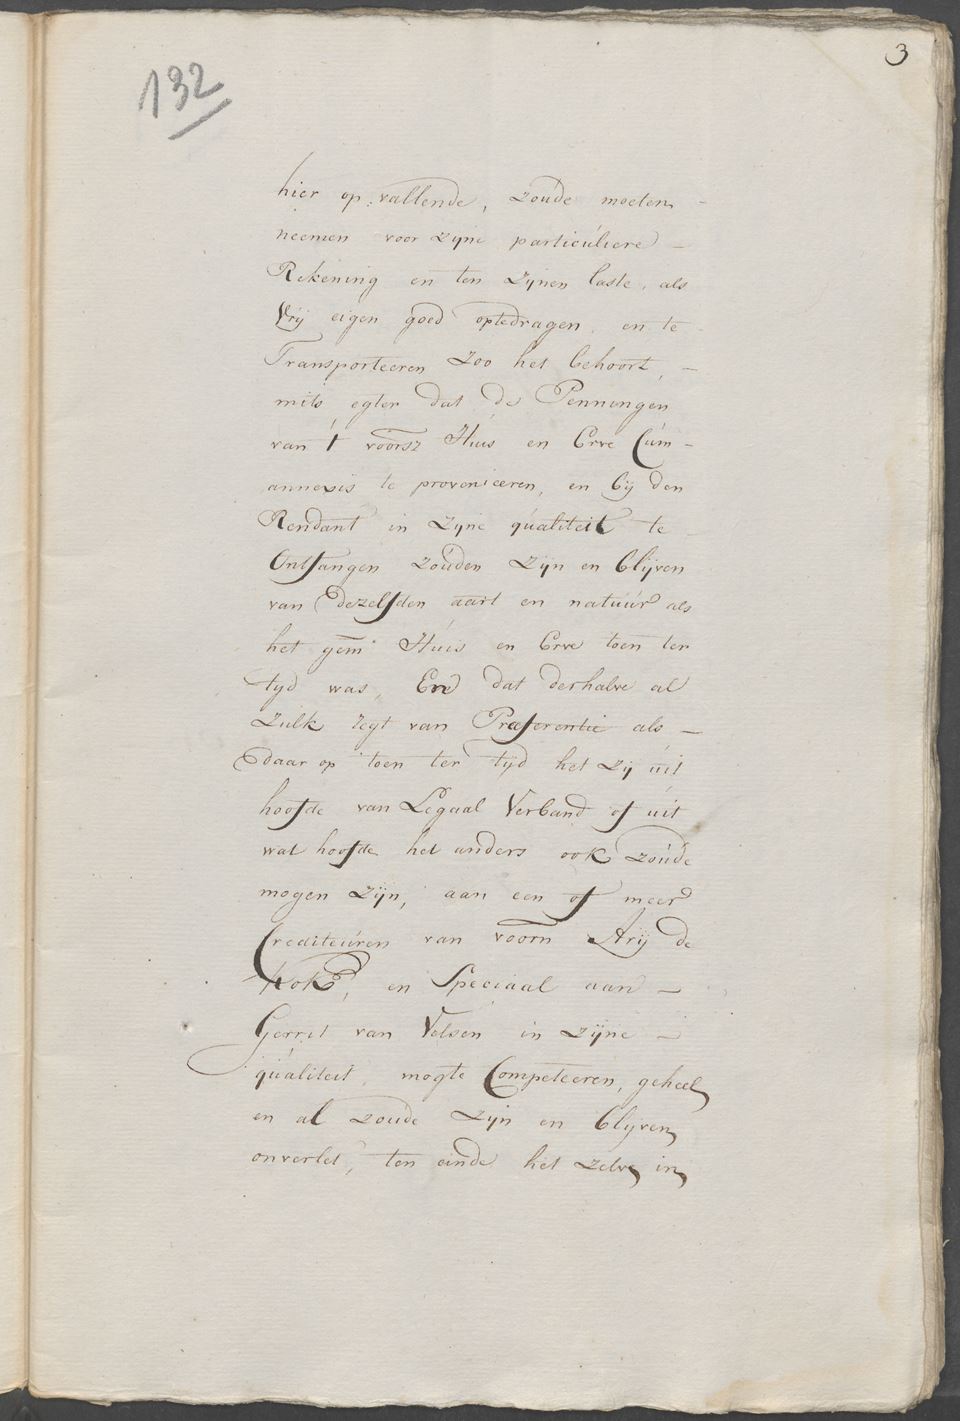 132
3
hier op vallende, zoude moeten
neemen voor zijne particuliere
Rekening en ten zijnen laste, als
Vrij eigen goed optedragen en te
Transporteeren zoo het behoort,
mits egter dat de Penningen
van 't voorsz Huis en Erve Cúm
annexis te provenieeren, en bij den
Rendant in zijne qualiteit te
Ontfangen zouden zijn en blijven
van dezelfden aart en natuur als
het gem Huis en Erve toen ter
tijd was, En dat derhalve al
zulk regt van Præferentie als
daar op toen ter tijd het zij uit
hoofde van Legaal Verband of uit
wat hoofde het anders ook zoude
mogen zijn, aan een of meer
Crediteuren van voorn Arij de
Kok, en Speciaal aan
Gerrit van Velsen in zijne
qualiteit, mogte Competeeren, geheel
en al zoude zijn en blijven
onverlet, ten einde het zelve in